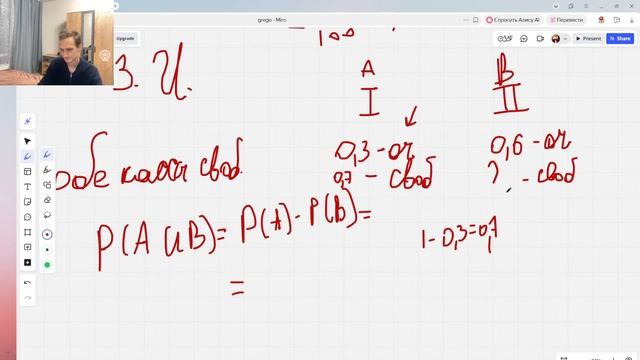 grego - Miro
Спросить Алису AI
Перевести
Upgrade
Present
Share
100
З. И.
A
B
I
II
0,3 - оч
0,6 - оч
обе кассы своб.
0,7 - своб
? - своб
P(A и B) = P(A) · P(B) =
1 - 0,3 = 0,7
=